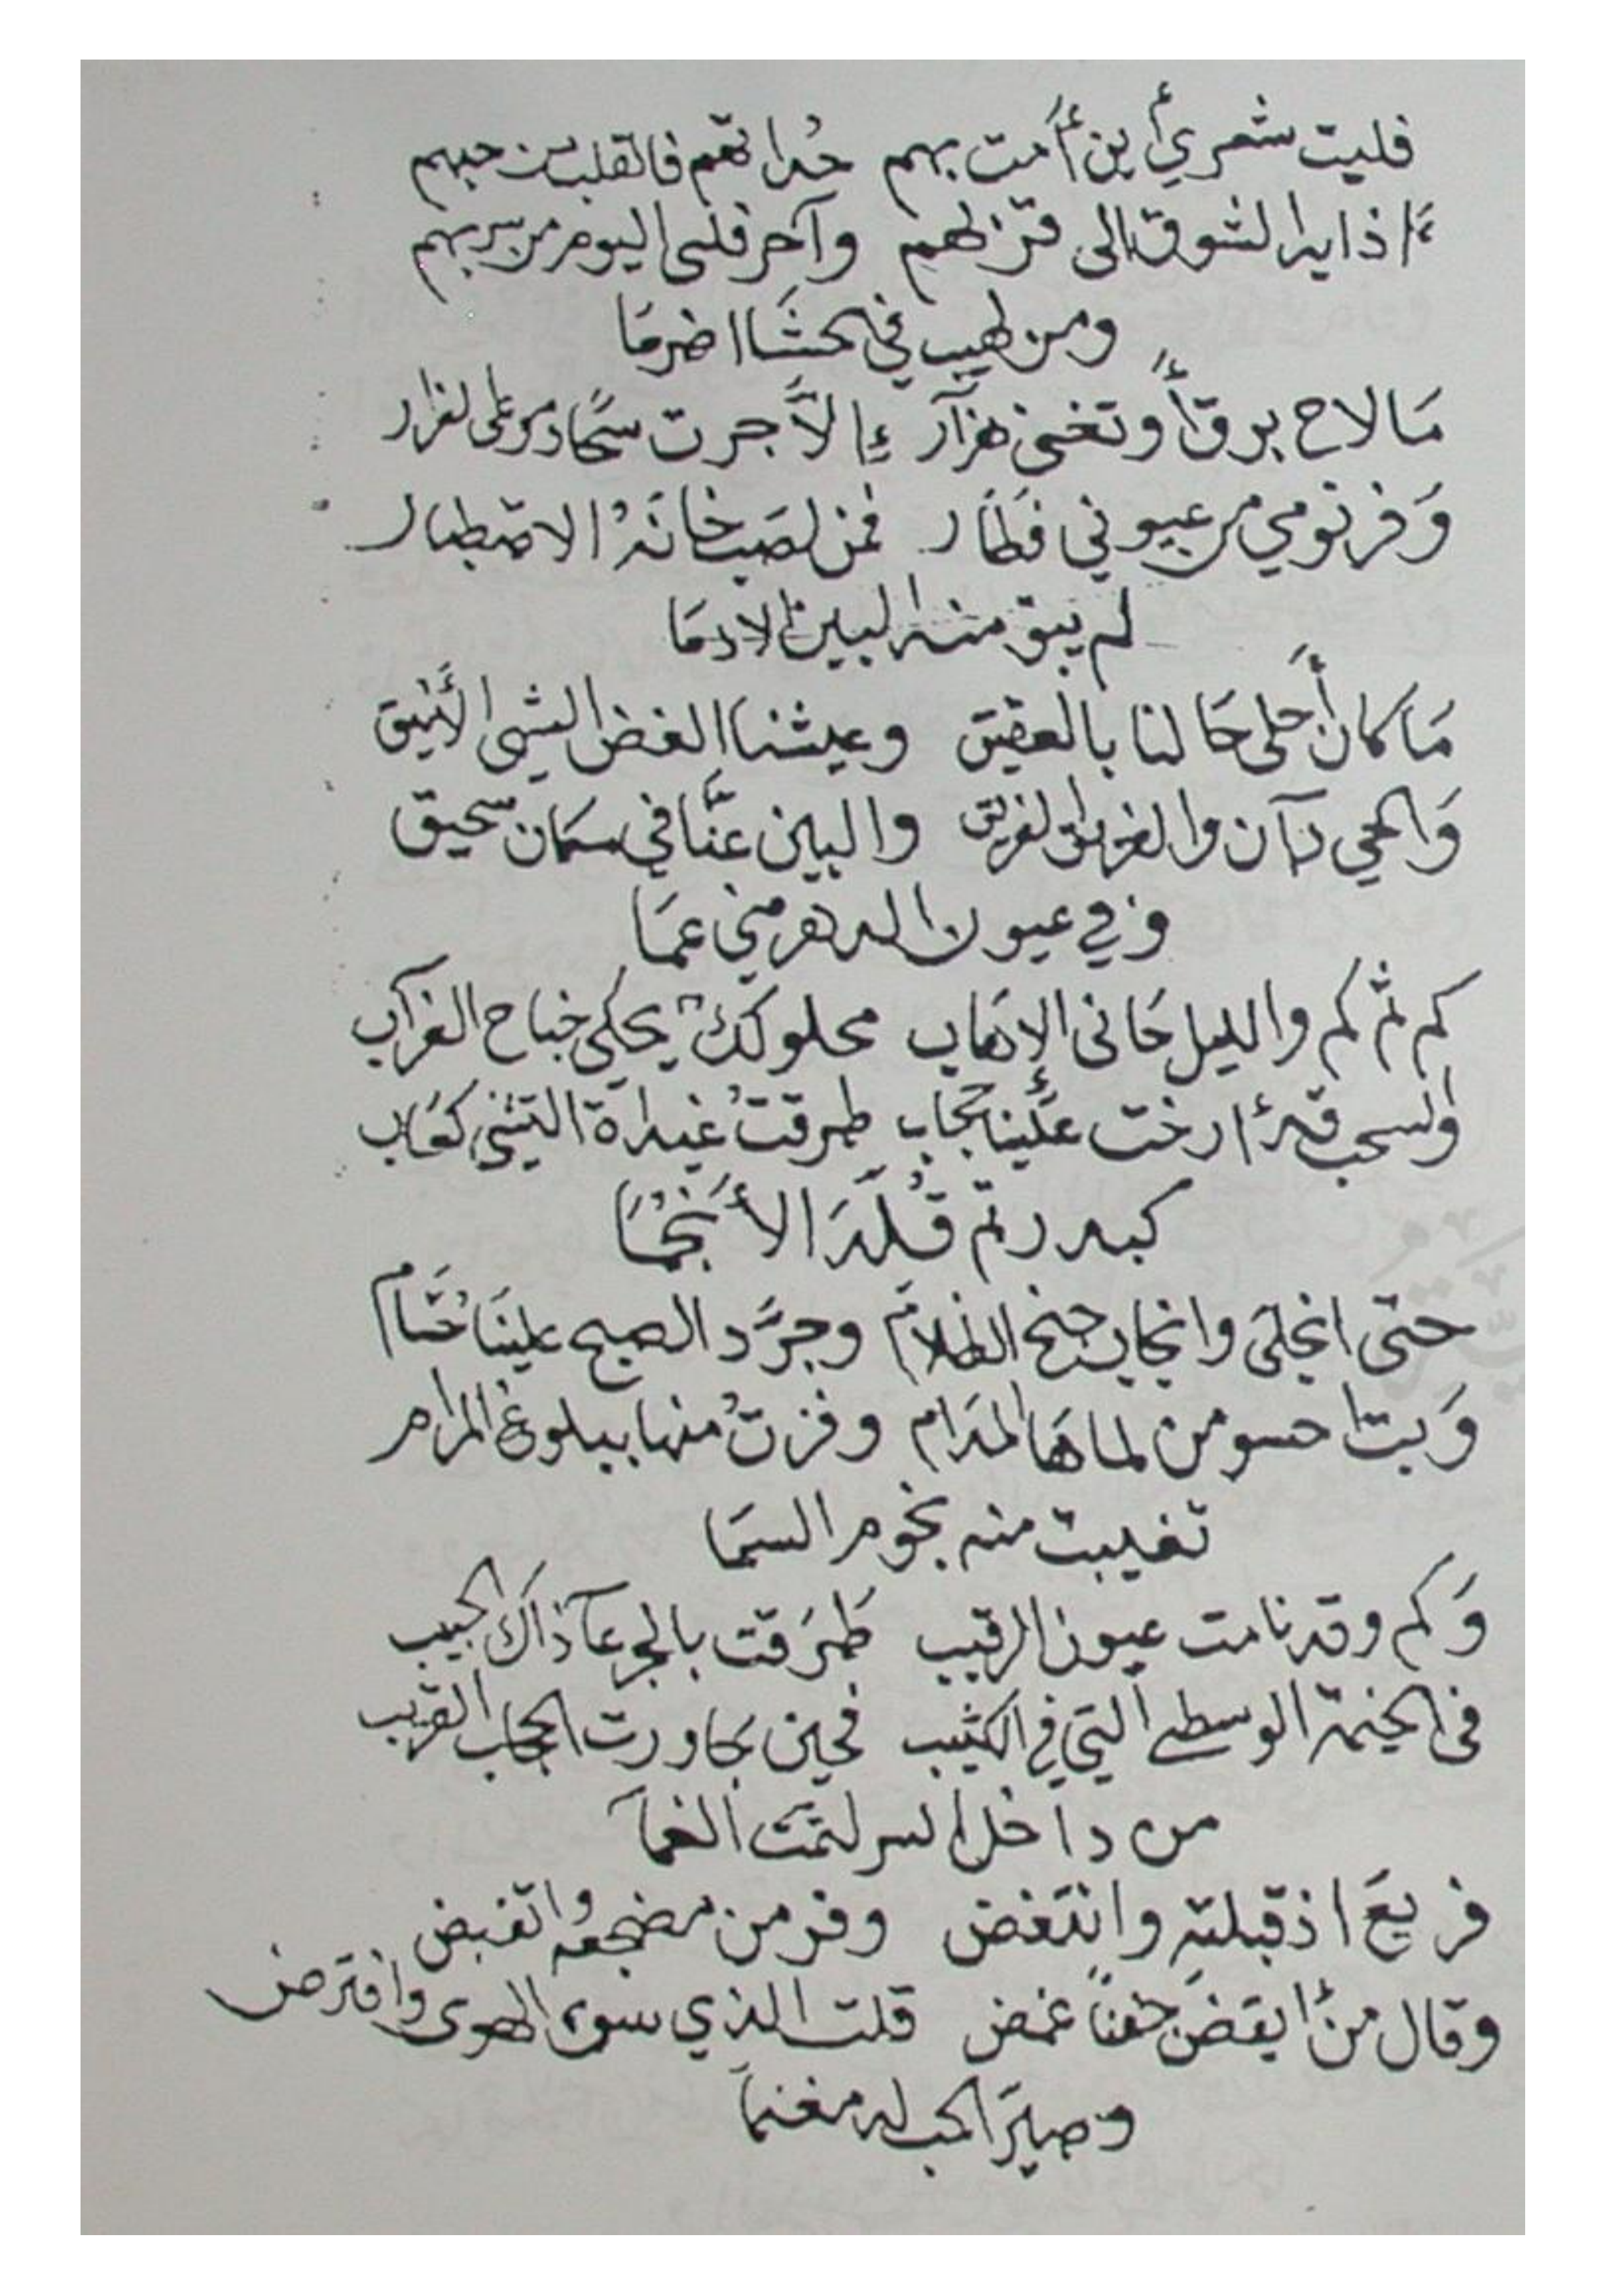 فليت شعري أين أمت بهم حداتهم فالقلب من حبهم
إذا يد الشوق الى قربهم وآخر قلبي اليوم من سربهم
ومن لهيب في حشا اضرما
مَا لاح برق أو تغنى هزآر إلاَّ جرت سحًا دموعي لغزار
وَفر نومي من عيوني فطَار فمن لصب خانهُ الاصطبار
لم يبق منه البين إلا دمَا
مَا كان أحلى حَالنا بالعقيق وعيشنا الغض الشهى الأنيق
وَالحي دآن والفريق الفريق والبين عنَّا في مكان سحيق
وفي عيون الدهر مني عمَا
كم ثم كم والليل حَانى الإهَاب محلولكٌ يحكي جناح الغرآب
والسحب قد أرخت علَينا حجاب طرقتُ غيداة التثني كعَاب
كبدر تمّ قُلّدَ الأَنجُمَا
حتى انجلَى وانجاب جنح الظلاَم وجرَّد الصبح علينَا حُسَام
وَبت احسو من لماهَا المدَام وفزتُ منها ببلوغ المرام
تغيبت منه نجوم السمَا
وَكم وقد نامت عيون الرقيب طَرَقت بالجرعآ ذاك الحبيب
فى الخيمة الوسطى التي في الكثيب فحين جاورت الحجاب القريب
من داخل الستر لثمت الفمآ
فريعَ اذ قبلته وانتفض وفر من مضجعه وانقبض
وقال من أيقضَ جفنًا غمض قلت الذي سوى الهوى وافترض
وصيرَ الحب له مغنماً